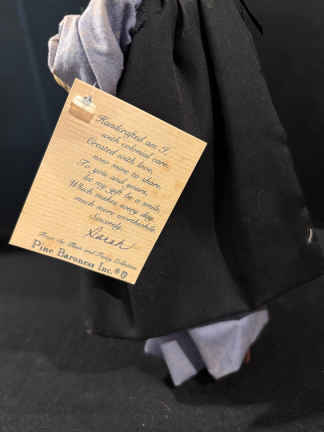 Handcrafted am I
with colonial care,
Created with love,
now mine to share.
To you and yours,
be my gift be a smile,
Which makes every day
much more worthwhile.
Sincerely,
Sarah
From the Collection
Pine Baroness Inc.®